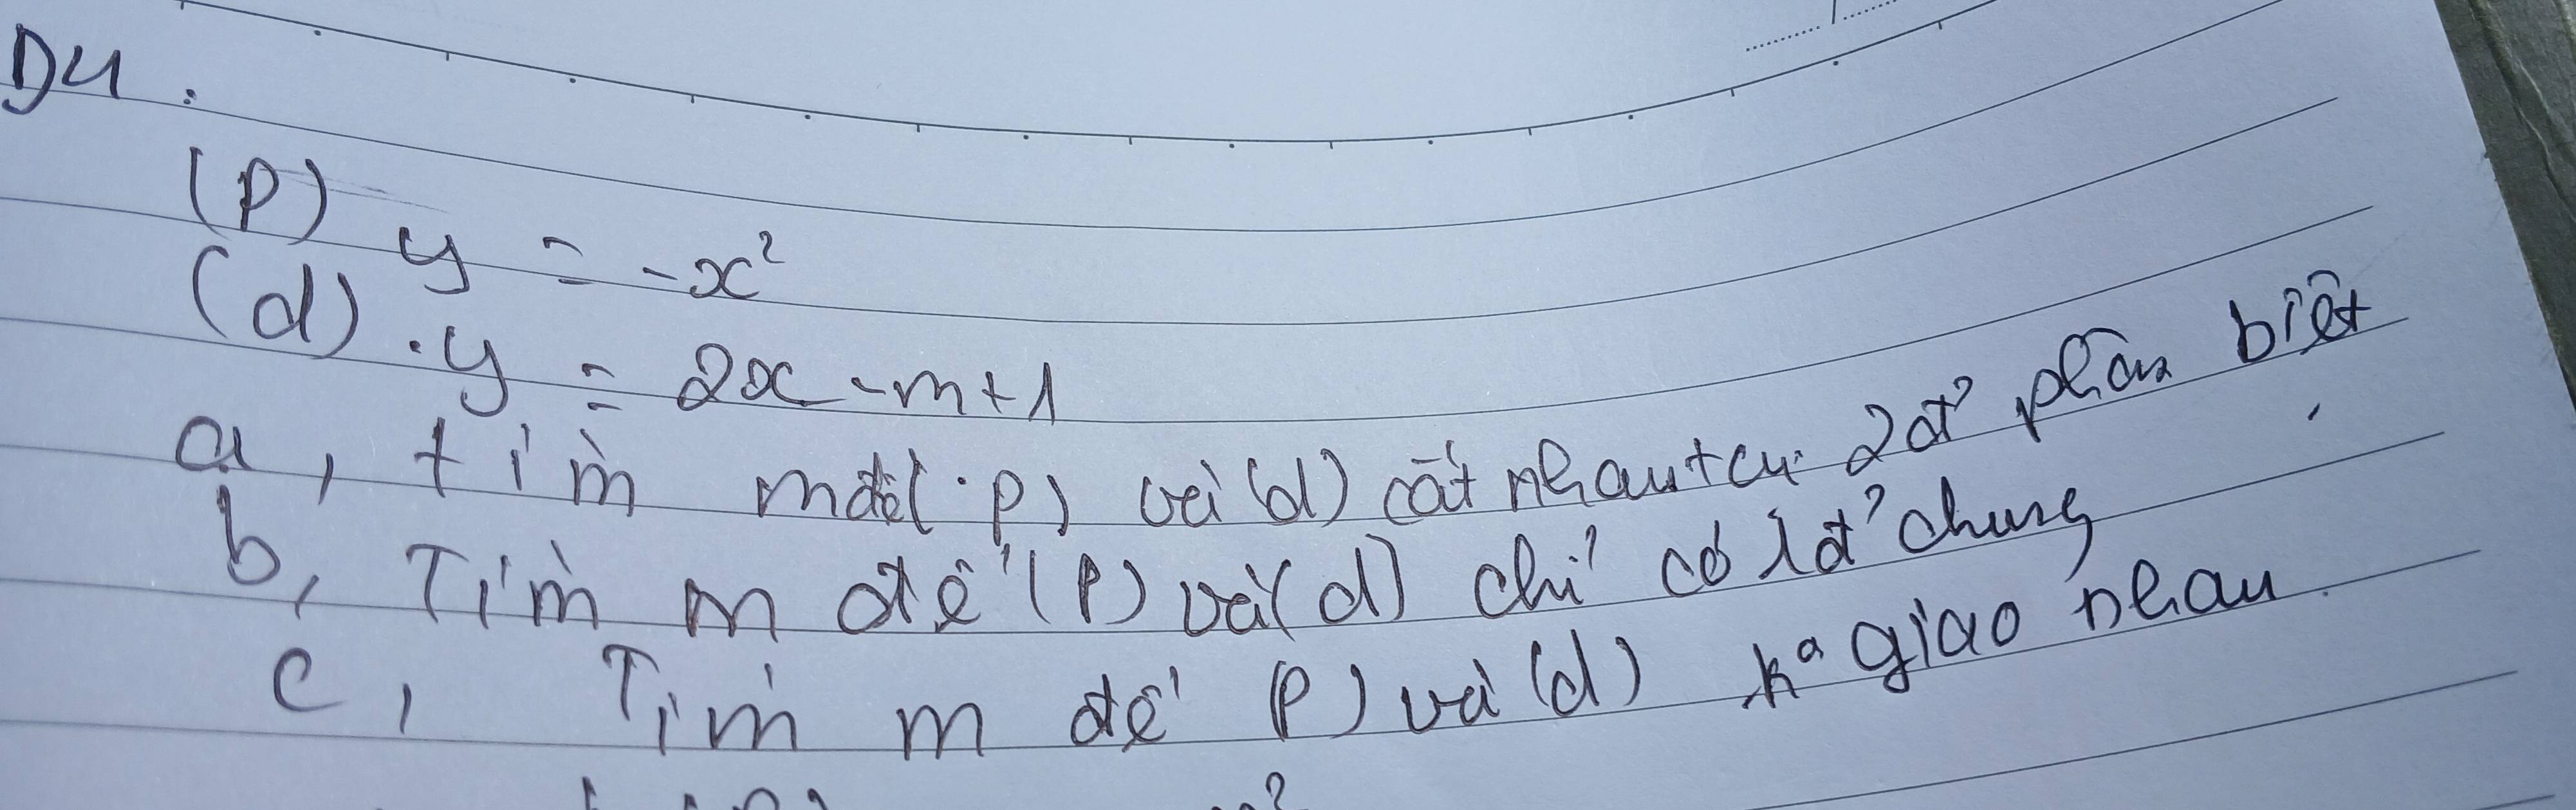 D4 :
(P) y = -x²
(d) . y = 2x - m + 1
a, tìm m để (P) và (d) cắt nhau tại 2 đ' phân biệt
b, Tìm m để (P) và (d) chỉ có 1 đ' chung
c, Tìm m để (P) và (d) kº giao nhau